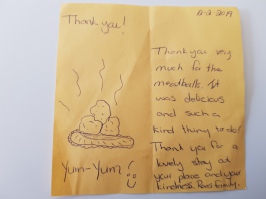 Thank you!
Yum-Yum!
8-2-2019
Thank you very
much for the
meatballs. It
was delicious
and such a
kind thing to do!
Thank you for a
lovely stay at
your place and your
kindness. family.